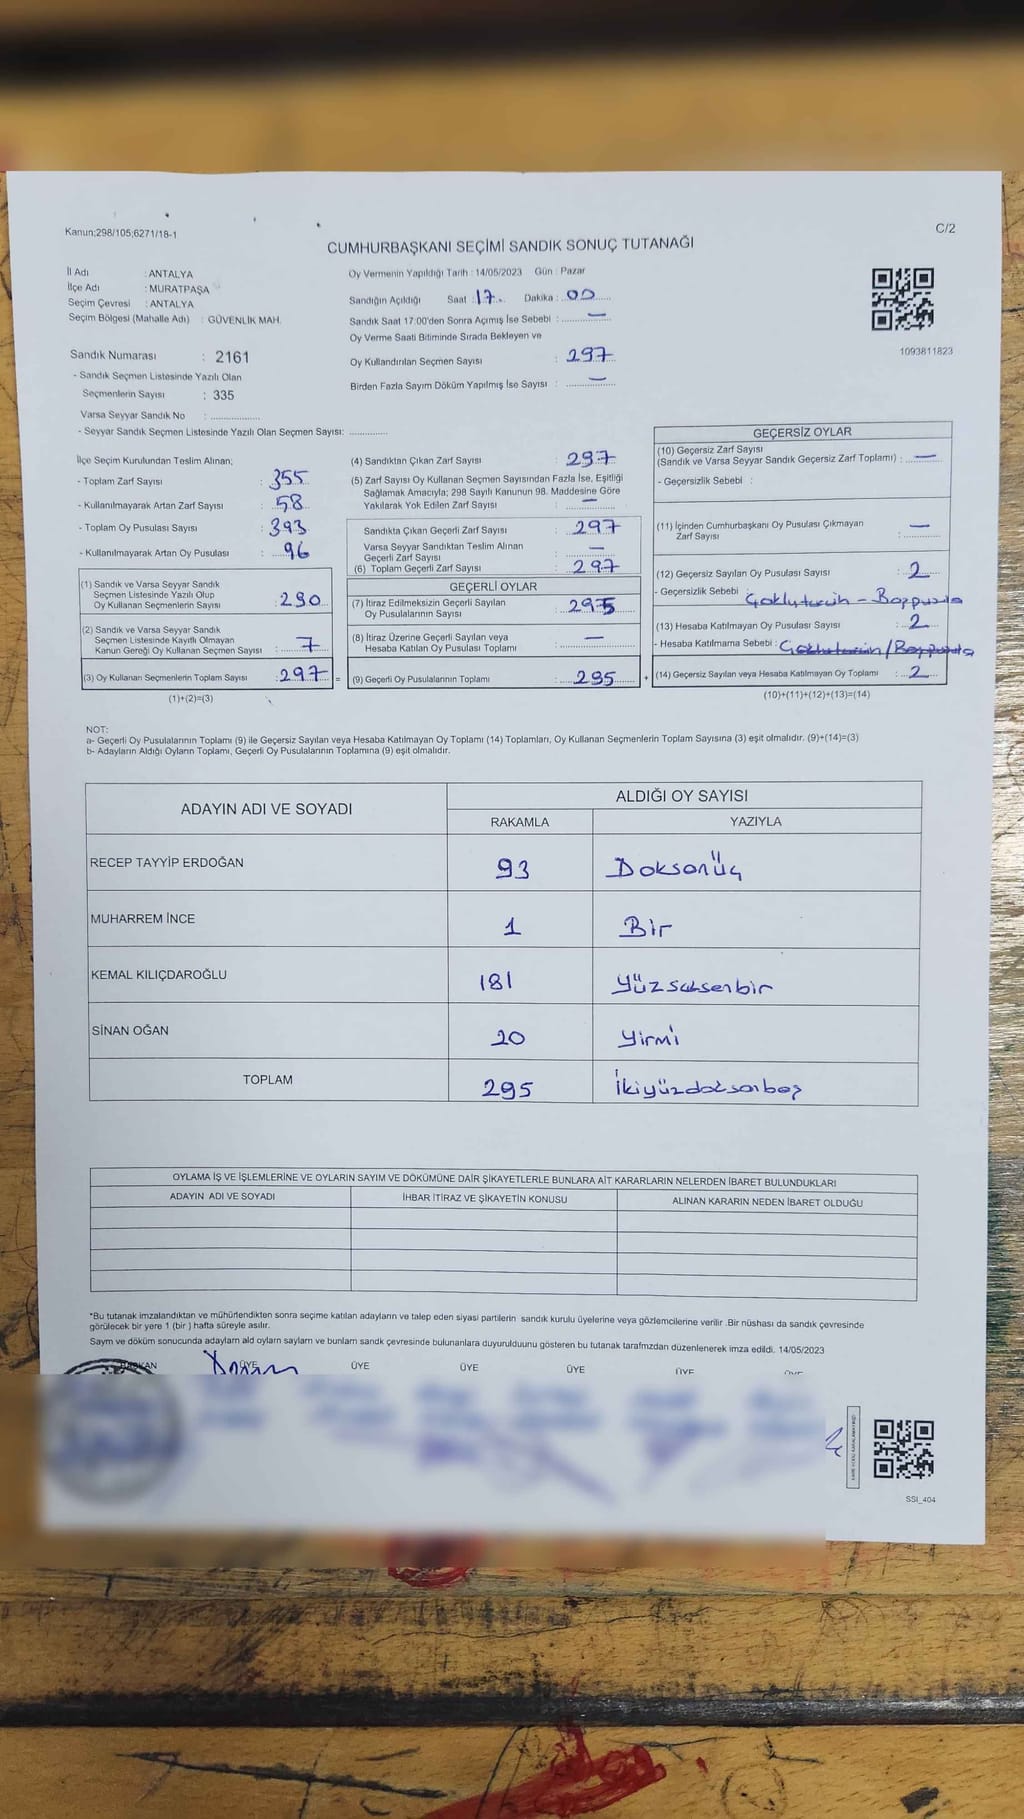 Kanun;298/105;6271/18-1
C/2
CUMHURBAŞKANI SEÇİMİ SANDIK SONUÇ TUTANAĞI
İl Adı : ANTALYA
İlçe Adı : MURATPAŞA
Seçim Çevresi : ANTALYA
Seçim Bölgesi (Mahalle Adı) : GÜVENLİK MAH.
Sandık Numarası : 2161
- Sandık Seçmen Listesinde Yazılı Olan
Seçmenlerin Sayısı : 335
Varsa Seyyar Sandık No : ..................
- Seyyar Sandık Seçmen Listesinde Yazılı Olan Seçmen Sayısı: ..............
Oy Vermenin Yapıldığı Tarih : 14/05/2023 Gün : Pazar
Sandığın Açıldığı Saat : 17 Dakika : 00
Sandık Saat 17:00'den Sonra Açmış İse Sebebi : —
Oy Verme Saati Bitiminde Sırada Bekleyen ve
Oy Kullandırılan Seçmen Sayısı : 297
Birden Fazla Sayım Döküm Yapılmış İse Sayısı : —
1093811823
İlçe Seçim Kurulundan Teslim Alınan;
- Toplam Zarf Sayısı : 355
- Kullanılmayarak Artan Zarf Sayısı : 58
- Toplam Oy Pusulası Sayısı : 393
- Kullanılmayarak Artan Oy Pusulası : 96
(1) Sandık ve Varsa Seyyar Sandık
Seçmen Listesinde Yazılı Olup
Oy Kullanan Seçmenlerin Sayısı : 290
(2) Sandık ve Varsa Seyyar Sandık
Seçmen Listesinde Kayıtlı Olmayan
Kanun Gereği Oy Kullanan Seçmen Sayısı : 7
(3) Oy Kullanan Seçmenlerin Toplam Sayısı : 297 =
(1)+(2)=(3)
(4) Sandıktan Çıkan Zarf Sayısı : 297
(5) Zarf Sayısı Oy Kullanan Seçmen Sayısından Fazla İse, Eşitliği
Sağlamak Amacıyla; 298 Sayılı Kanunun 98. Maddesine Göre
Yakılarak Yok Edilen Zarf Sayısı : —
Sandıkta Çıkan Geçerli Zarf Sayısı : 297
Varsa Seyyar Sandıktan Teslim Alınan
Geçerli Zarf Sayısı : —
(6) Toplam Geçerli Zarf Sayısı : 297
GEÇERLİ OYLAR
(7) İtiraz Edilmeksizin Geçerli Sayılan
Oy Pusulalarının Sayısı : 295
(8) İtiraz Üzerine Geçerli Sayılan veya
Hesaba Katılan Oy Pusulası Toplamı : —
(9) Geçerli Oy Pusulalarının Toplamı : 295 +
GEÇERSİZ OYLAR
(10) Geçersiz Zarf Sayısı
(Sandık ve Varsa Seyyar Sandık Geçersiz Zarf Toplamı) : —
- Geçersizlik Sebebi :
(11) İçinden Cumhurbaşkanı Oy Pusulası Çıkmayan
Zarf Sayısı : —
(12) Geçersiz Sayılan Oy Pusulası Sayısı : 2
- Geçersizlik Sebebi :
(13) Hesaba Katılmayan Oy Pusulası Sayısı : 2
- Hesaba Katılmama Sebebi :
(14) Geçersiz Sayılan veya Hesaba Katılmayan Oy Toplamı : 2
(10)+(11)+(12)+(13)=(14)
NOT:
a- Geçerli Oy Pusulalarının Toplamı (9) ile Geçersiz Sayılan veya Hesaba Katılmayan Oy Toplamı (14) Toplamları, Oy Kullanan Seçmenlerin Toplam Sayısına (3) eşit olmalıdır. (9)+(14)=(3)
b- Adayların Aldığı Oyların Toplamı, Geçerli Oy Pusulalarının Toplamına (9) eşit olmalıdır.
ADAYIN ADI VE SOYADI ALDIĞI OY SAYISI
RAKAMLA YAZIYLA
RECEP TAYYİP ERDOĞAN 93 Doksanüç
MUHARREM İNCE 1 Bir
KEMAL KILIÇDAROĞLU 181 Yüzseksenbir
SİNAN OĞAN 20 Yirmi
TOPLAM 295 İkiyüzdoksanbeş
OYLAMA İŞ VE İŞLEMLERİNE VE OYLARIN SAYIM VE DÖKÜMÜNE DAİR ŞİKAYETLERLE BUNLARA AİT KARARLARIN NELERDEN İBARET BULUNDUKLARI
ADAYIN ADI VE SOYADI İHBAR İTİRAZ VE ŞİKAYETİN KONUSU ALINAN KARARIN NEDEN İBARET OLDUĞU
*Bu tutanak imzalandıktan ve mühürlendikten sonra seçime katılan adayların ve talep eden siyasi partilerin sandık kurulu üyelerine veya gözlemcilerine verilir .Bir nüshası da sandık çevresinde
görülecek bir yere 1 (bir ) hafta süreyle asılır.
Sayım ve döküm sonucunda adayların ald oyların sayların ve bunlam sandk çevresinde bulunanlara duyurulduunu gösteren bu tutanak tarafmzdan düzenlenerek imza edildi. 14/05/2023
BAŞKAN ÜYE ÜYE ÜYE ÜYE ÜYE ÜYE
SSI_404